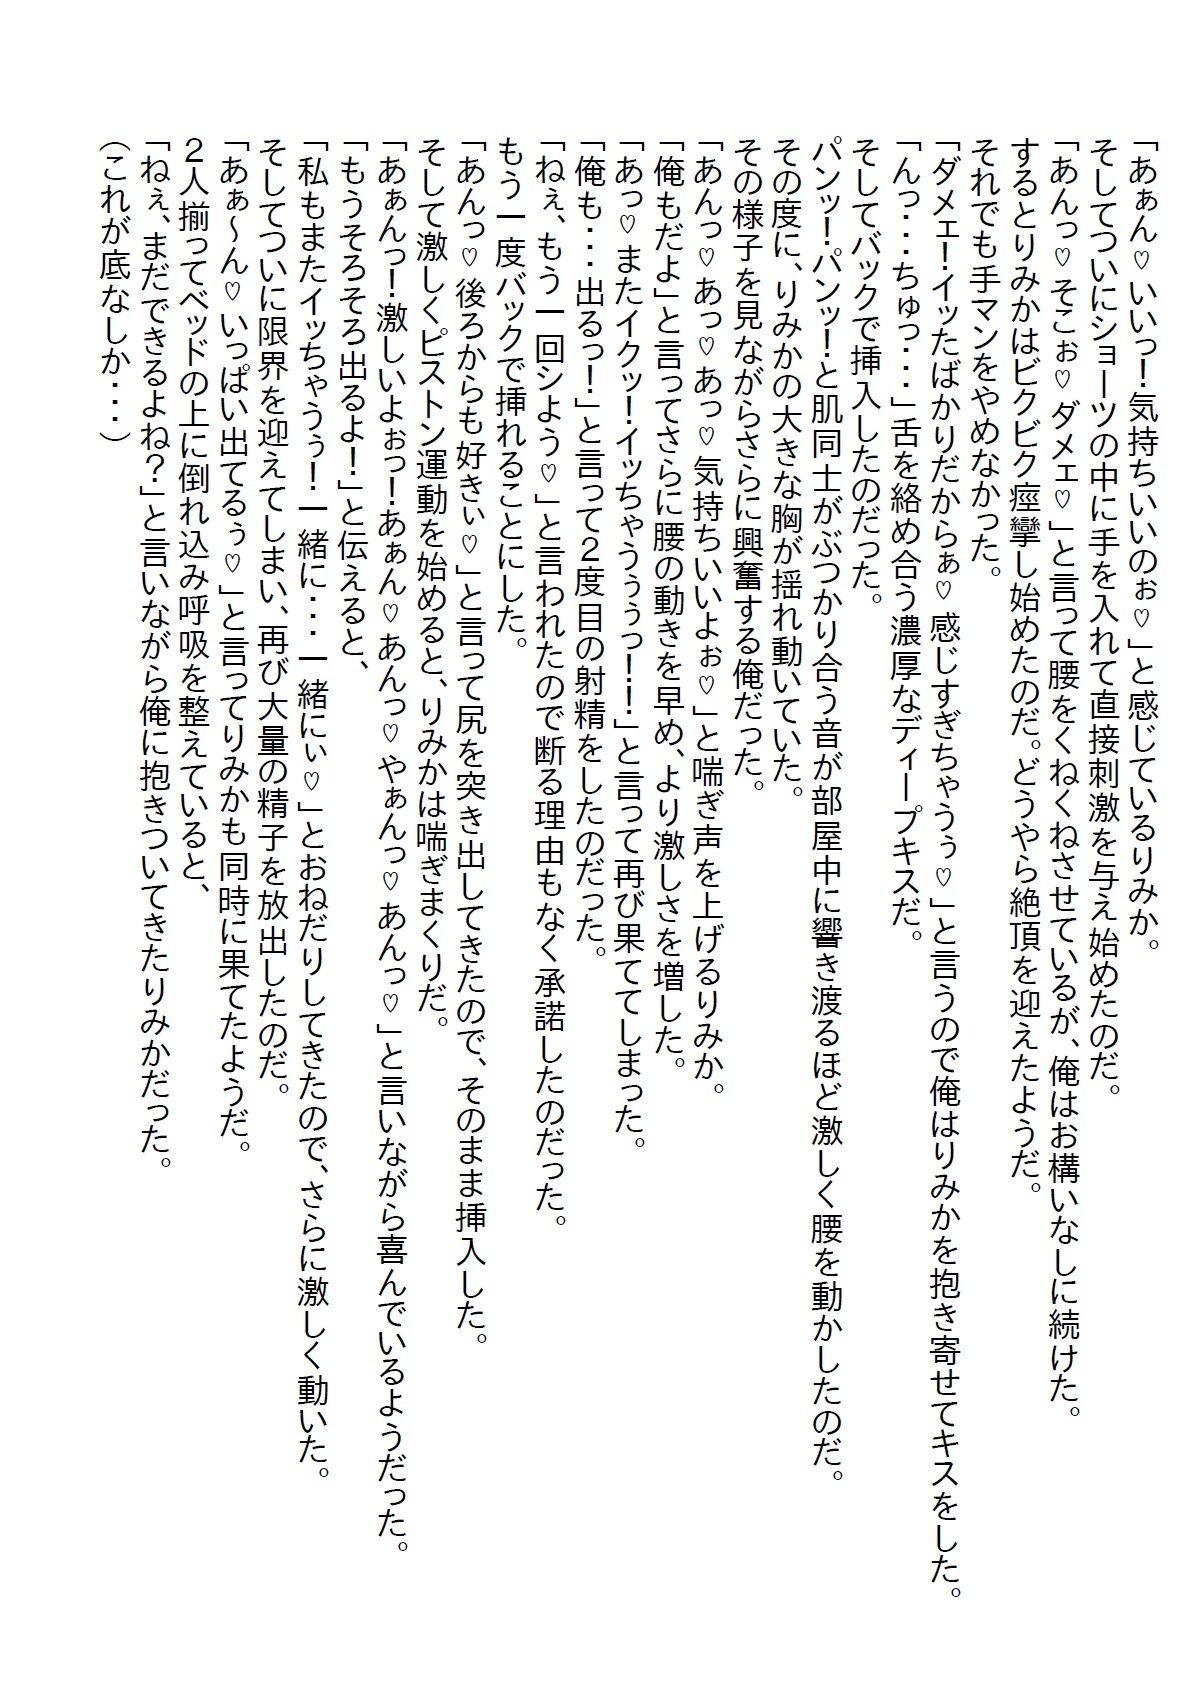 「あぁん♡いいっ！気持ちいいのぉ♡」と感じているりみか。
そしてついにショーツの中に手を入れて直接刺激を与え始めたのだ。
「あんっ♡そこぉ♡ダメェ♡」と言って腰をくねくねさせているが、俺はお構いなしに続けた。
するとりみかはビクビク痙攣し始めたのだ。どうやら絶頂を迎えたようだ。
それでも手マンをやめなかった。
「ダメェ！イッたばかりだからぁ♡感じすぎちゃうぅ♡」と言うので俺はりみかを抱き寄せてキスをした。
「んっ・・・ちゅっ・・・」舌を絡め合う濃厚なディープキスだ。
そしてバックで挿入したのだった。
パンッ！パンッ！と肌同士がぶつかり合う音が部屋中に響き渡るほど激しく腰を動かしたのだ。
その度に、りみかの大きな胸が揺れ動いていた。
その様子を見ながらさらに興奮する俺だった。
「あんっ♡あっ♡あっ♡気持ちいいよぉ♡」と喘ぎ声を上げるりみか。
「俺もだよ」と言ってさらに腰の動きを早め、より激しさを増した。
「あっ♡またイクッ！イッちゃうぅぅっ！！」と言って再び果ててしまった。
「俺も・・・出るっ！」と言って２度目の射精をしたのだった。
「ねぇ、もう一回シよう♡」と言われたので断る理由もなく承諾したのだった。
もう一度バックで挿れることにした。
「あんっ♡後ろからも好きぃ♡」と言って尻を突き出してきたので、そのまま挿入した。
そして激しくピストン運動を始めると、りみかは喘ぎまくりだ。
「あぁんっ！激しいよぉっ！あぁん♡あんっ♡やぁんっ♡あんっ♡」と言いながら喜んでいるようだった。
「もうそろそろ出るよ！」と伝えると、
「私もまたイッちゃうぅ！一緒に・・・一緒にぃ♡」とおねだりしてきたので、さらに激しく動いた。
そしてついに限界を迎えてしまい、再び大量の精子を放出したのだ。
「あぁ～ん♡いっぱい出てるぅ♡」と言ってりみかも同時に果てたようだ。
２人揃ってベッドの上に倒れ込み呼吸を整えていると、
「ねぇ、まだできるよね？」と言いながら俺に抱きついてきたりみかだった。
（これが底なしか・・・）